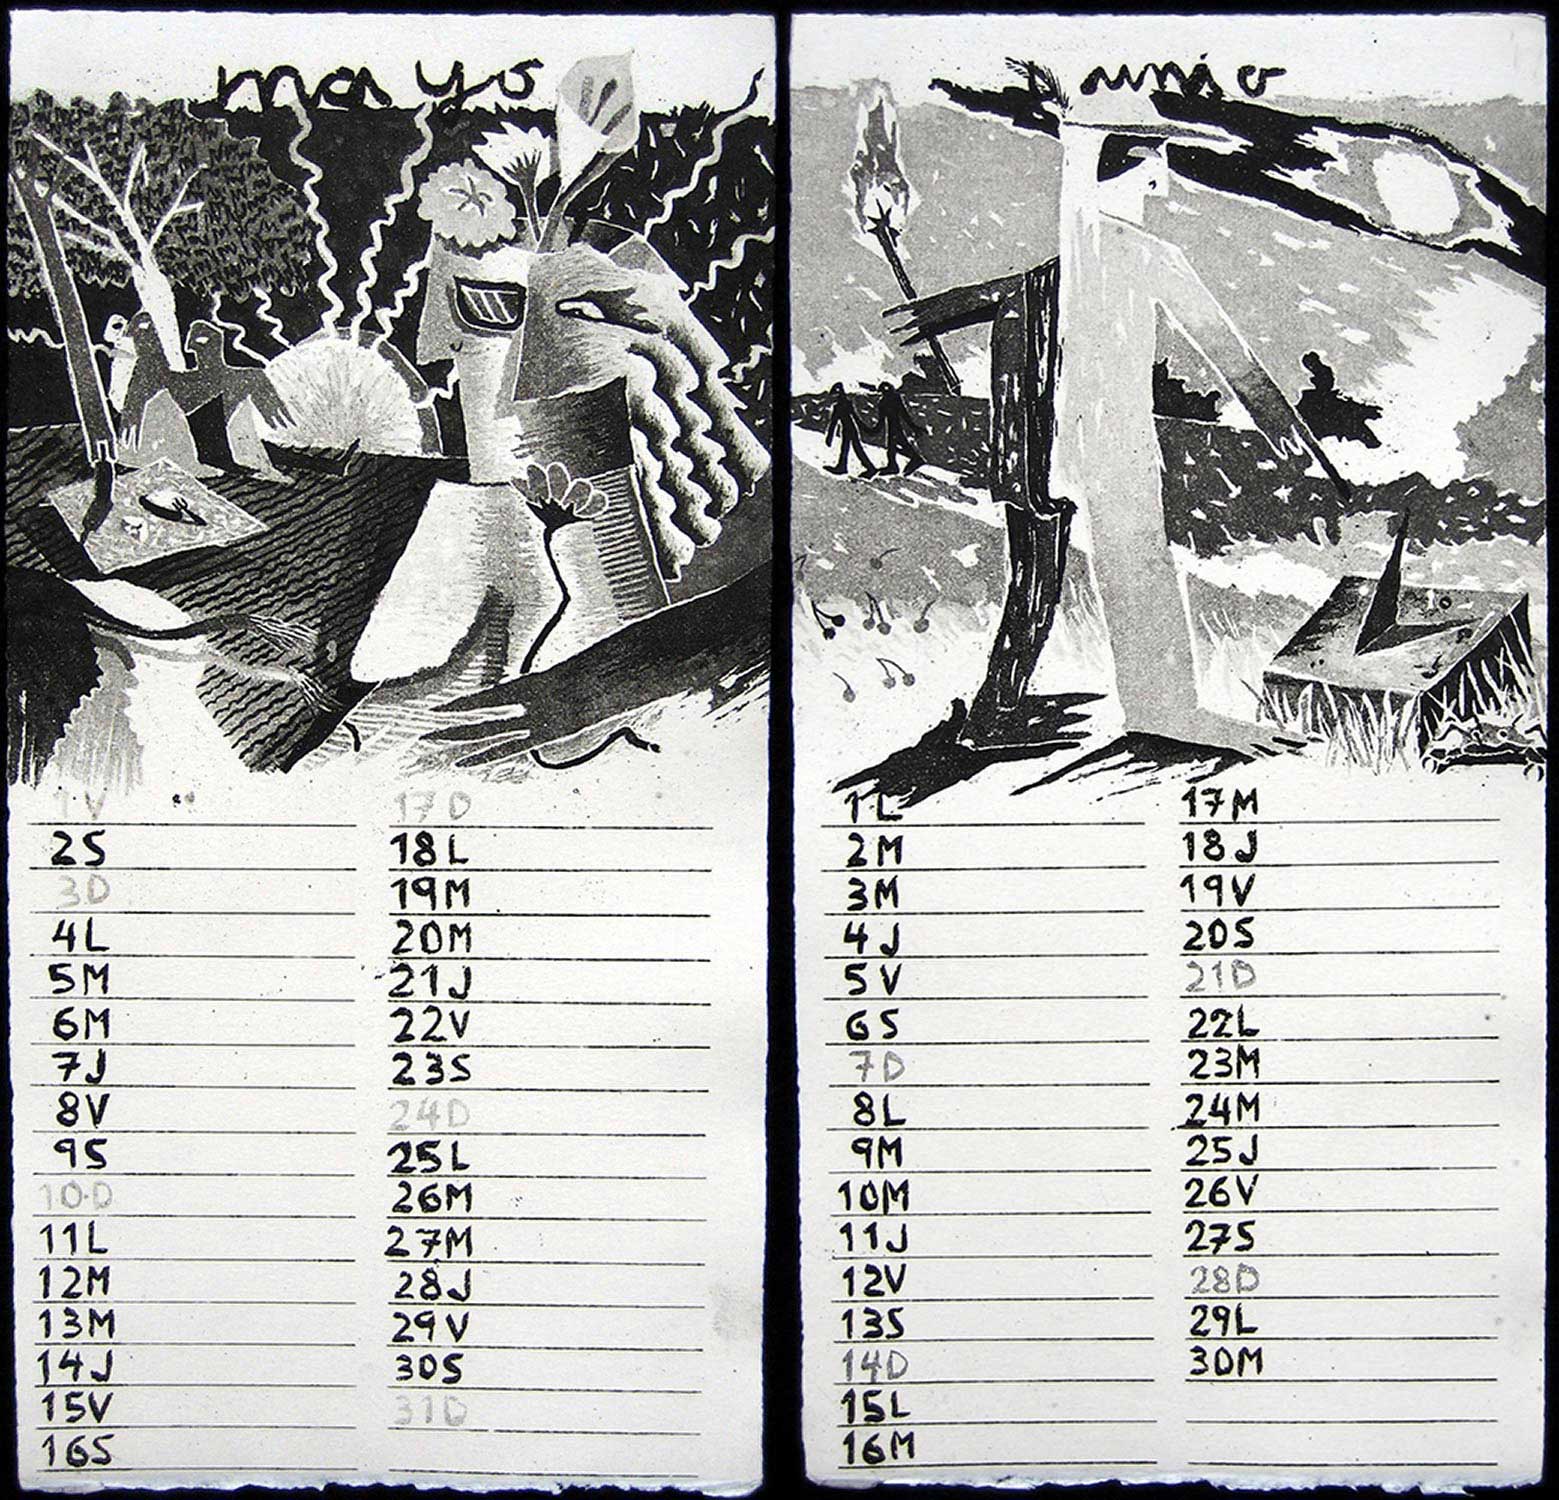 mayo
1V
2S
3D
4L
5M
6M
7J
8V
9S
10D
11L
12M
13M
14J
15V
16S
17D
18L
19M
20M
21J
22V
23S
24D
25L
26M
27M
28J
29V
30S
31D
junio
1L
2M
3M
4J
5V
6S
7D
8L
9M
10M
11J
12V
13S
14D
15L
16M
17M
18J
19V
20S
21D
22L
23M
24M
25J
26V
27S
28D
29L
30M